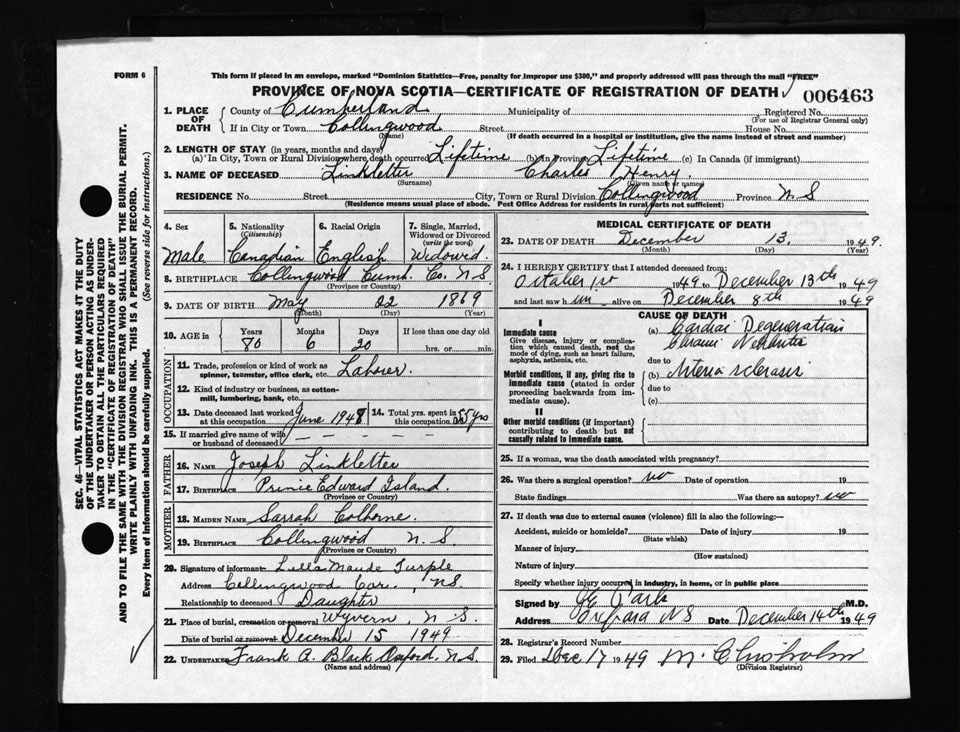 FORM 6
This form if placed in an envelope, marked "Dominion Statistics—Free, penalty for improper use $300," and properly addressed will pass through the mail "FREE"
PROVINCE OF NOVA SCOTIA—CERTIFICATE OF REGISTRATION OF DEATH
006463
1. PLACE OF DEATH
County of Cumberland Municipality of Registered No.
(For use of Registrar General only)
If in City or Town Collingwood Street House No.
(Name) (If death occurred in a hospital or institution, give the name instead of street and number)
2. LENGTH OF STAY (in years, months and days)
(a) In City, Town or Rural Division where death occurred Lifetime (b) In Province Lifetime (c) In Canada (if immigrant)
3. NAME OF DECEASED Linkletter Charles Henry.
(Surname) (Given name or names)
RESIDENCE No. Street City, Town or Rural Division Collingwood Province N.S
(Residence means usual place of abode. Post Office Address for residents in rural parts not sufficient)
4. Sex
Male
5. Nationality
(Citizenship)
Canadian
6. Racial Origin
English
7. Single, Married, Widowed or Divorced
(write the word)
Widowed
8. BIRTHPLACE Collingwood Cumb. Co. N.S
(Province or Country)
9. DATE OF BIRTH May 22 1869
(Month) (Day) (Year)
10. AGE in
Years Months Days If less than one day old
80 6 20 hrs. or min.
OCCUPATION
11. Trade, profession or kind of work as
spinner, teamster, office clerk, etc. Laborer.
12. Kind of industry or business, as cotton-
mill, lumbering, bank, etc.
13. Date deceased last worked at this occupation June 1948
14. Total yrs. spent in this occupation 55 yrs
15. If married give name of wife or husband of deceased
FATHER
16. NAME Joseph Linkletter
17. BIRTHPLACE Prince Edward Island.
(Province or Country)
MOTHER
18. MAIDEN NAME Sarrah Colborne.
19. BIRTHPLACE Collingwood N.S.
(Province or Country)
20. Signature of informant Lilla Maude Turple
Address Collingwood Cor., N.S.
Relationship to deceased Daughter
21. Place of burial, cremation or removal Wyvern, N.S.
Date of burial or removal December 15 1949
22. UNDERTAKER Frank A. Black Oxford N.S.
(Name and address)
MEDICAL CERTIFICATE OF DEATH
23. DATE OF DEATH December 13. 1949.
(Month) (Day)
24. I HEREBY CERTIFY that I attended deceased from:
1949 to December 13th 1949
and last saw alive on December 8th 1949
CAUSE OF DEATH
I
Immediate cause
Give disease, injury or complication which caused death, not the mode of dying, such as heart failure, asphyxia, asthenia, etc.
(a) Cardiac Degeneration
Chronic Nephritis
due to
Morbid conditions, if any, giving rise to immediate cause (stated in order proceeding backwards from immediate cause).
(b) Arteriosclerosis
due to
(c)
II
Other morbid conditions (if important) contributing to death but not causally related to immediate cause.
25. If a woman, was the death associated with pregnancy?
26. Was there a surgical operation? no Date of operation 19
State findings Was there an autopsy? no
27. If death was due to external causes (violence) fill in also the following:—
Accident, suicide or homicide? Date of injury 19
(State which)
Manner of injury
(How sustained)
Nature of injury
Specify whether injury occurred in industry, in home, or in public place
Signed by M.D.
Address Oxford NS Date December 14th 1949
28. Registrar's Record Number
29. Filed Dec 17 1949 M. Chisholm
(Division Registrar)
SEC. 46—VITAL STATISTICS ACT MAKES IT THE DUTY
OF THE UNDERTAKER OR PERSON ACTING AS UNDER-
TAKER TO OBTAIN ALL THE PARTICULARS REQUIRED
IN THE "CERTIFICATE OF REGISTRATION OF DEATH"
AND TO FILE THE SAME WITH THE DIVISION REGISTRAR WHO SHALL ISSUE THE BURIAL PERMIT.
WRITE PLAINLY WITH UNFADING INK. THIS IS A PERMANENT RECORD.
Every item of information should be carefully supplied. (See reverse side for instructions.)